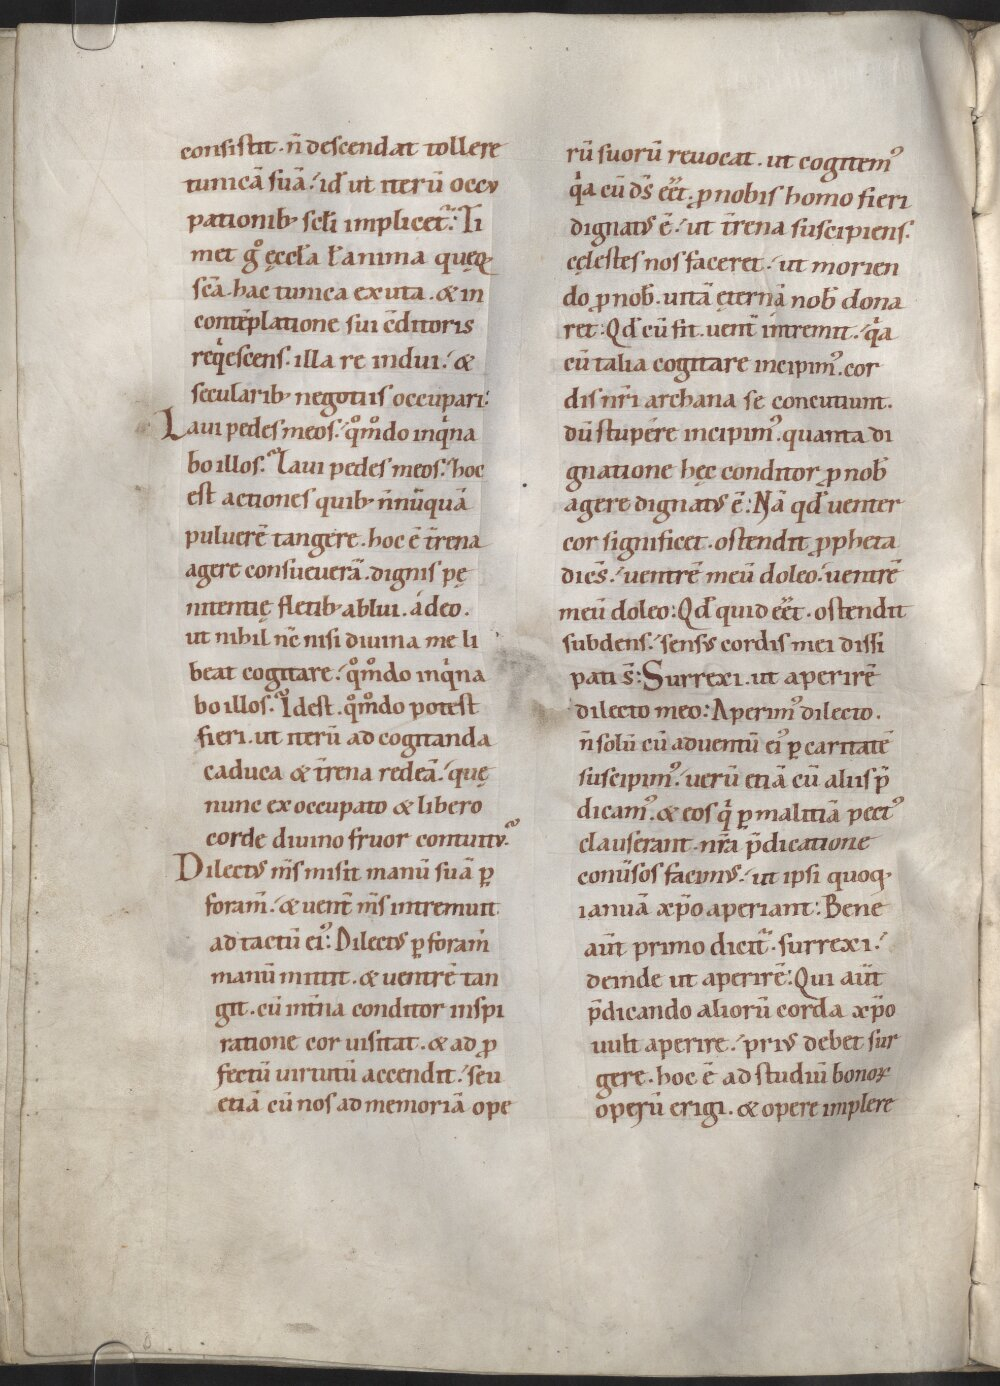 consistit. n̄ descendat tollere
tunicā suā. id ut iterū occu
pationib; sc̄li implicet᷑. Ti
met g̊ ęccl̄a ł anima quęq;
sc̄a. hac tunica exuta. & in
contēplatione sui c̄ditoris
reqͥescens. illa re indui. &
secularib; negotiis occupari.
Laui pedes meos. qͦmͦdo inqͥna
bo illos. Laui pedes meos. hoc
est actiones quib; n̄nūquā
puluerē tangere. hoc ē t̄rena
agere consueuerā. dignis pę
nitentię fletib; ablui. á deo.
ut nihil nc̄ nisi diuina me li
beat cogitare. qͦmͦdo inqͥna
bo illos. Idest. qͦmͦdo potest
fieri. ut iterū ad cogitanda
caduca & t̄rena redeā. quę
nunc ex occupato & libero
corde diuino fruor contuitu.
Dilectus m̄s misit manū suā ꝑ
foram̄. & uent̄ m̄s intremuit
ad tactū ei᷒. Dilectus ꝑ foram̄
manū mittit. & uentrē tan
git. cū int̄na conditor inspi
ratione cor uisitat. & ad ꝓ
fectū uirtutū accendit. seu
etiā cū nos ad memoriā ope
rū suorū reuocat. ut cogitem᷒
qͥa cū ds̄ eēt. ꝓ nobis homo fieri
dignatus ē. ut t̄rena suscipiens.
cęlestes nos faceret. ut morien
do ꝓ nob̄. uitā ęternā nob̄ dona
ret. Qd̄ cū fit. uent̄ intremit. qͥa
cū talia cogitare incipim᷒. cor
dis nr̄i archana se concutiunt.
dū stupére incipim᷒. quanta di
gnatione hęc conditor ꝓ nob̄
agere dignatus ē. Nā qd̄ uenter
cor significet. ostendit ꝓpheta
dicēs. uentrē meū doleo. uentrē
meū doleo. Qd̄ quid eēt. ostendit
subdens. sensus cordis mei dissi
pati s̄. Surrexi. ut aperirē
dilecto meo. Aperim᷒ dilecto.
n̄ solū cū aduentū ei᷒ ꝑ caritatē
suscipim᷒. uerū etiā cū aliis p̄
dicam᷒. & eos qͥ ꝑ malitiā pect᷒
clauserant. nr̄a p̄dicatione
conu̅sos facim᷒. ut ipsi quoq;
ianuā xp̄o aperiant. Bene
aūt primo dicit᷑. surrexi.
deinde ut aperirē. Qui aūt
p̄dicando aliorū corda xp̄o
uult aperire. prius debet sur
gere. hoc ē ad studiū bonoꝝ
operū erigi. & opere implere